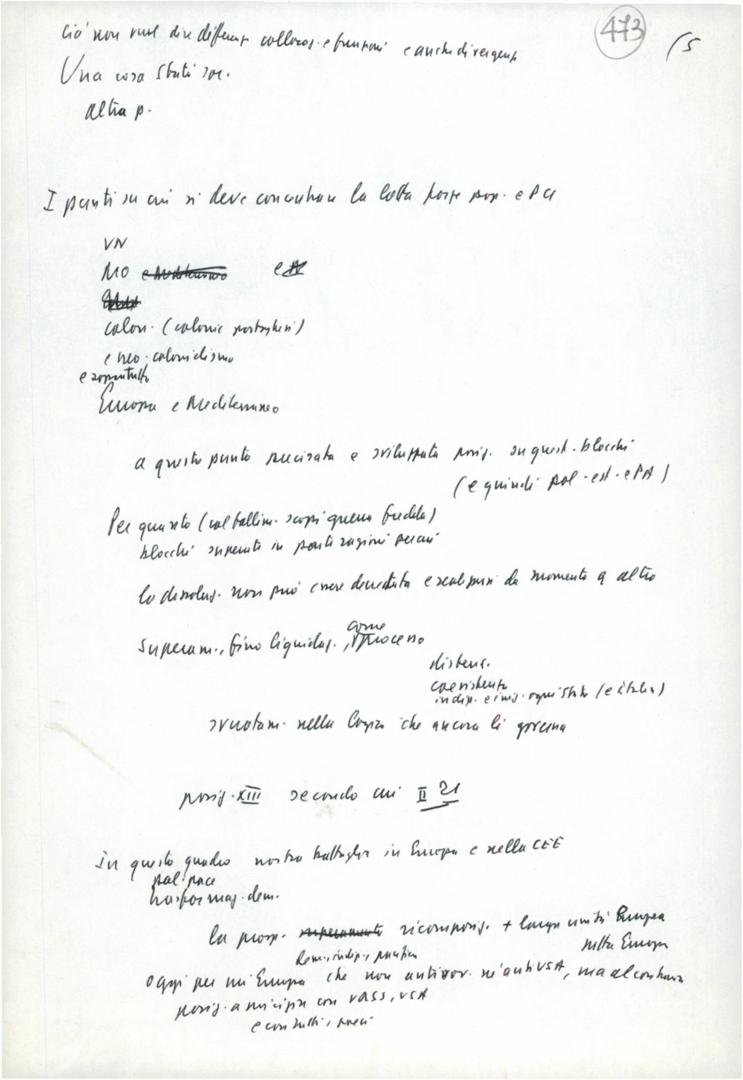 473
15
Ciò non vuol dire differenz. collocaz. e funzioni e anche divergenze
Una cosa Stati soc.
altra p.
I punti su cui si deve concentrare la lotta forze pop. e PCI
VN
MO e Mediterraneo e
colon. (colonie portoghesi)
e neo-colonialismo
e soprattutto
Europa e Mediterraneo
a questo punto precisata e sviluppata posiz. su quest. blocchi
(e quindi pol. est. e PA)
Per quanto (col fallim. scopi guerra fredda)
blocchi superati in parte ragioni
la dissoluz. non può essere decretata e realizzarsi da momento a altro
superam., fino liquidaz., come processo
distens.
coesistenza
indip. e iniz. ogni Stato (e Italia)
svuotam. nella logica che ancora li governa
posiz. XIII secondo cui II 21
In questo quadro nostra battaglia in Europa e nella CEE
pol. pace
trasformaz. dem.
la prosp. superamento ricomposiz. + larga unità Europea
tutta Europa
Dem., indip., pacifica
oggi per un'Europa che non antisov. né antiUSA, ma al contrario
posiz. amicizia con URSS, USA
e con tutti i paesi